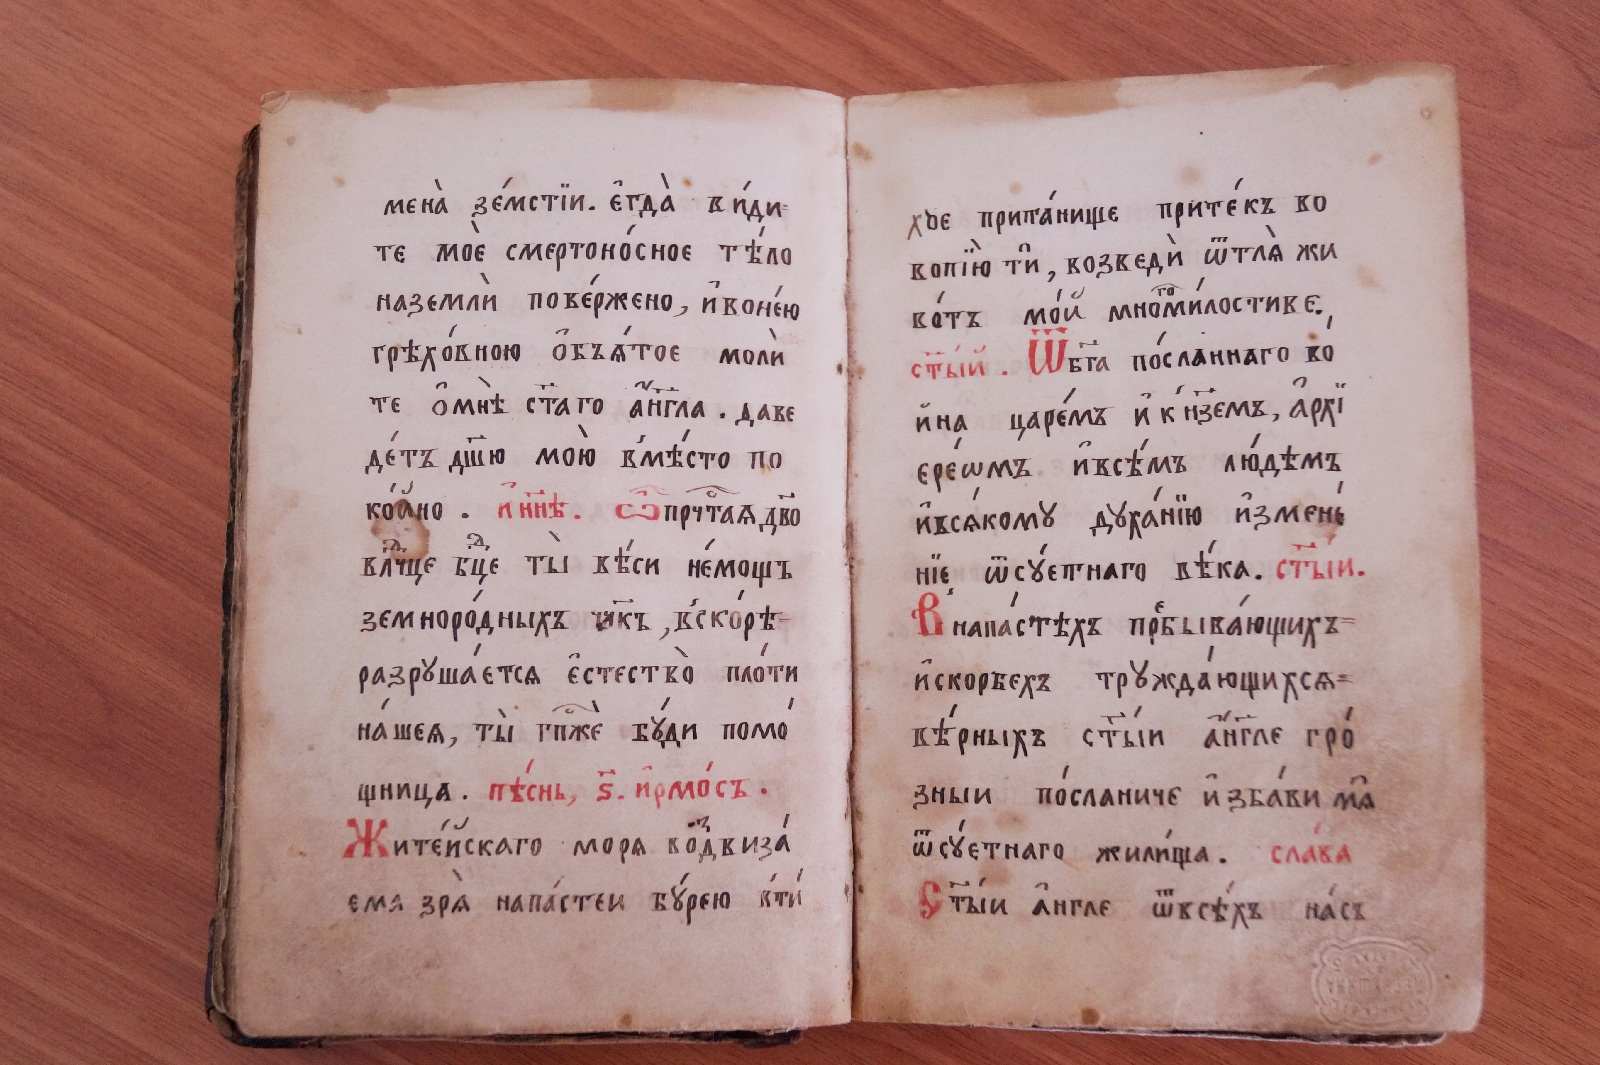 мена̀ зе́мстїи. є҆гда̀ ви́ди=
те моѐ смертоно́сное тѣ́ло
наземлѝ пове́ржено, и҆вонею
грѣхо́вною ѻ҆бъя́тое моли
те ѻ҆мнѣ̀ ст҃аго а҆́нг҃ла. даве
де́тъ дш҃ю мою̀ вмѣ́сто по
ко́йно. и҆нн҃ѣ. ѽ прчⷭ҇тая дв҃о
влⷣчце бцⷣе ты̀ вѣ́си не́мощъ
земноро́дныхъ чк҃ъ, вско́рѣ=
разруша́ется є҆стество̀ пло́ти
на́шея, ты̀ гп҃жѐ бу́ди помо́
щница. пѣ́снь, ѕ҃. и҆рмо́съ.
Жите́йскаго моря воⷥдвиза́
емя зря̀ напа́стеи бу́рею вти́
хое прита́нище прите́къ во
вопїю̀ ти, возведѝ ѿтля̀ жи
во́тъ мо́й многоми́лостиве.
ст҃ы́й. Ѿбг҃а по́сланнаго во́
ина царе́мъ и҆ кн҃земъ, а҆рхї
ере́ѡмъ и҆всѣ́мъ лю́дѣмъ
и҆вся́кому духа́нїю и҆змене́
нїе ѿсу́етнаго вѣ́ка. ст҃ы́и.
Внапа́стѣхъ пребыва́ющихъ=
и҆скорбехъ тружда́ющихся=
вѣ́рныхъ ст҃ы́и а҆́нг҃ле гро́
зныи по́сланиче и҆збави мѧ̀
ѿсу́етнаго жили́ща. сла́ва
Ст҃ы́и а҆́нгле ѿвсѣ́хъ на́съ